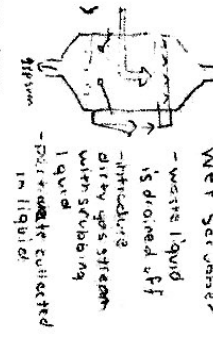 Wet scrubber
- waste liquid
is drained off
- introduce
dirty gas stream
with scrubbing
liquid
- particulate collected
in liquid